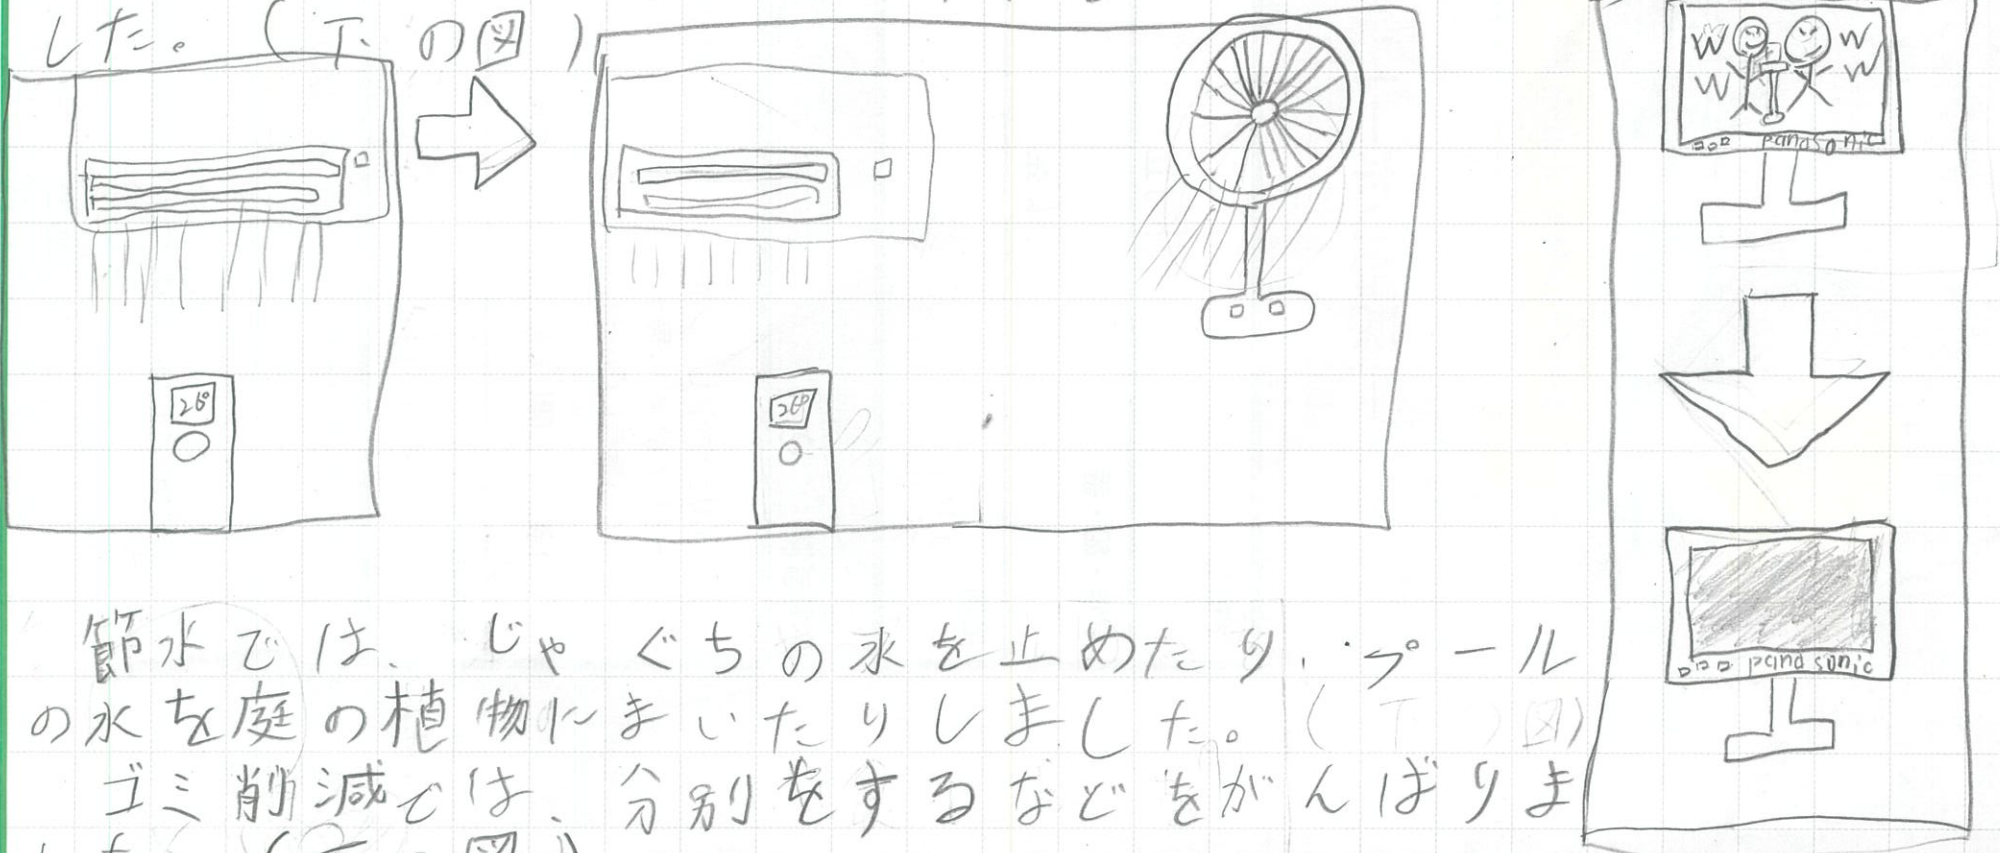 した。(下の図)
26°
26°
W W
W W
panasonic
panasonic
節水では、じゃぐちの水を止めたり、プール
の水を庭の植物にまいたりしました。(下 図)
ゴミ削減では、分別をするなどをがんばりま